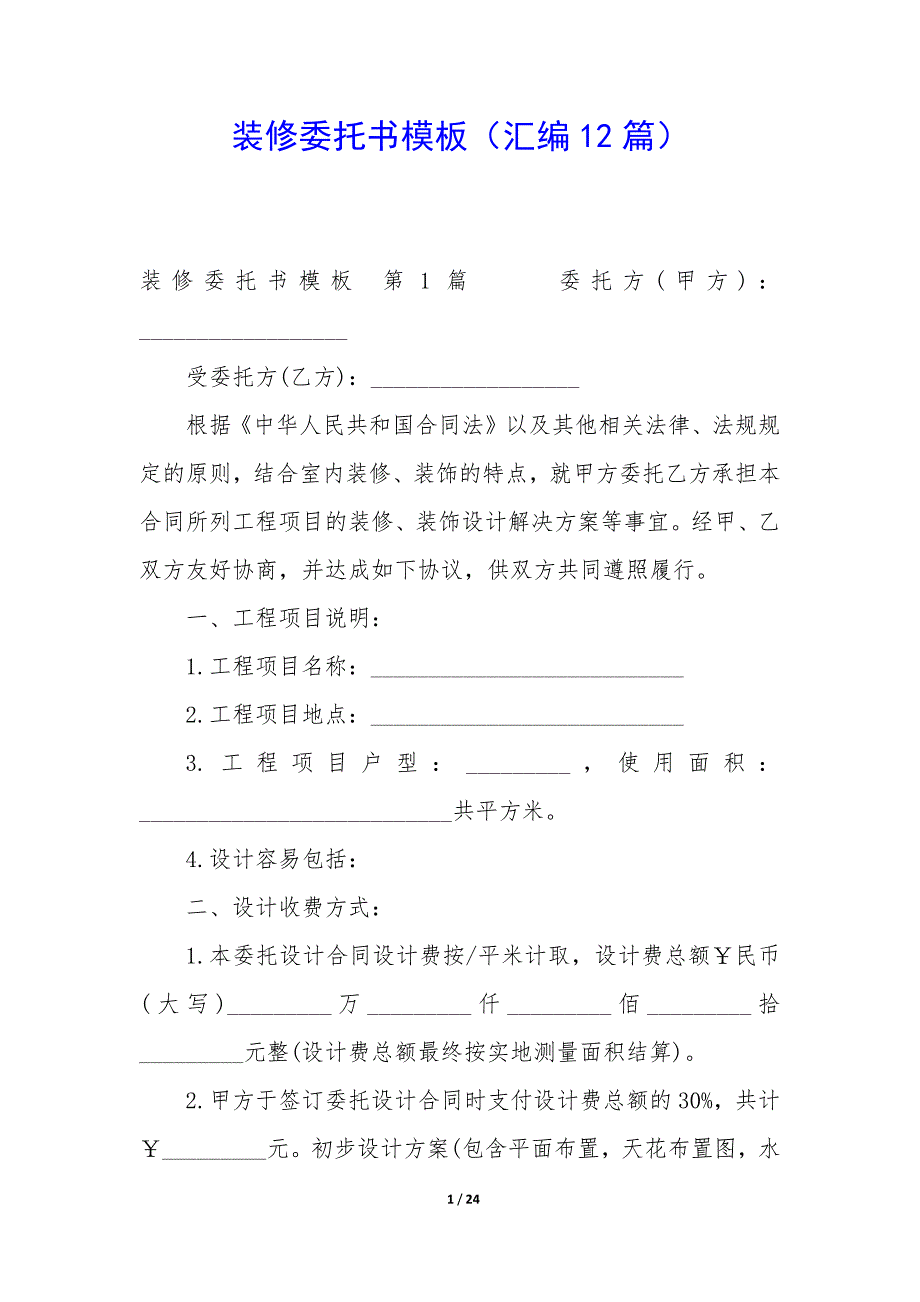 装修委托书模板（汇编12篇）
装修委托书模板 第1篇 委托方(甲方)：
__________________
受委托方(乙方)：__________________
根据《中华人民共和国合同法》以及其他相关法律、法规规
定的原则，结合室内装修、装饰的特点，就甲方委托乙方承担本
合同所列工程项目的装修、装饰设计解决方案等事宜。经甲、乙
双方友好协商，并达成如下协议，供双方共同遵照履行。
一、工程项目说明：
1.工程项目名称：___________________________
2.工程项目地点：___________________________
3.工程项目户型：_________，使用面积：
___________________________共平方米。
4.设计容易包括：
二、设计收费方式：
1.本委托设计合同设计费按/平米计取，设计费总额￥民币
(大写)_________万_________仟_________佰_________拾
_________元整(设计费总额最终按实地测量面积结算)。
2.甲方于签订委托设计合同时支付设计费总额的30%，共计
￥_________元。初步设计方案(包含平面布置，天花布置图，水
1 / 24